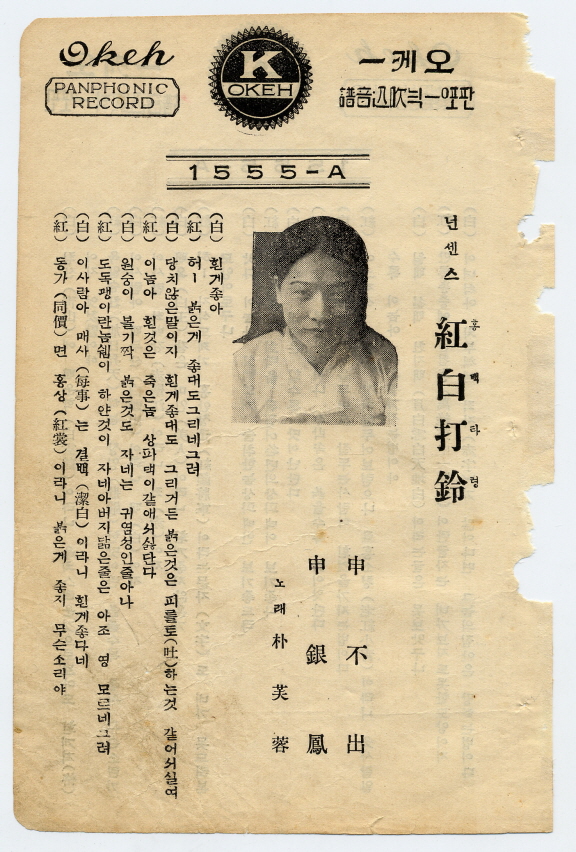 Okeh
PANPHONIC
RECORD
K
OKEH
一케오
譜音込吹늬一엮판
1555-A
넌센스 紅白打鈴
홍백타령
申不出
申銀鳳
노래 朴芙蓉
(白) 흰게좋아
(紅) 허ㅣ 붉은게 좋대도그리네그려
(白) 당치않은말이지 흰게좋대도 그리거든 붉은것은 피를토(吐)하는것 갈어쇠실여
(紅) 이놈아 흰것은 죽은놈 상파댁이갈애쇠싫단다
(白) 원숭이 볼기짝 붉은것도 자네는 귀염성인줄아나
(紅) 도독괭이만눔쉠이 하얀것이 자네아버지닮은줄은 아조 영 모르네그려
(白) 이사람아 매사(每事)는 결백(潔白)이라니 흰게좋다네
(紅) 동가(同價)면 홍상(紅裳)이라니 붉은게 좋지 무슨소리야